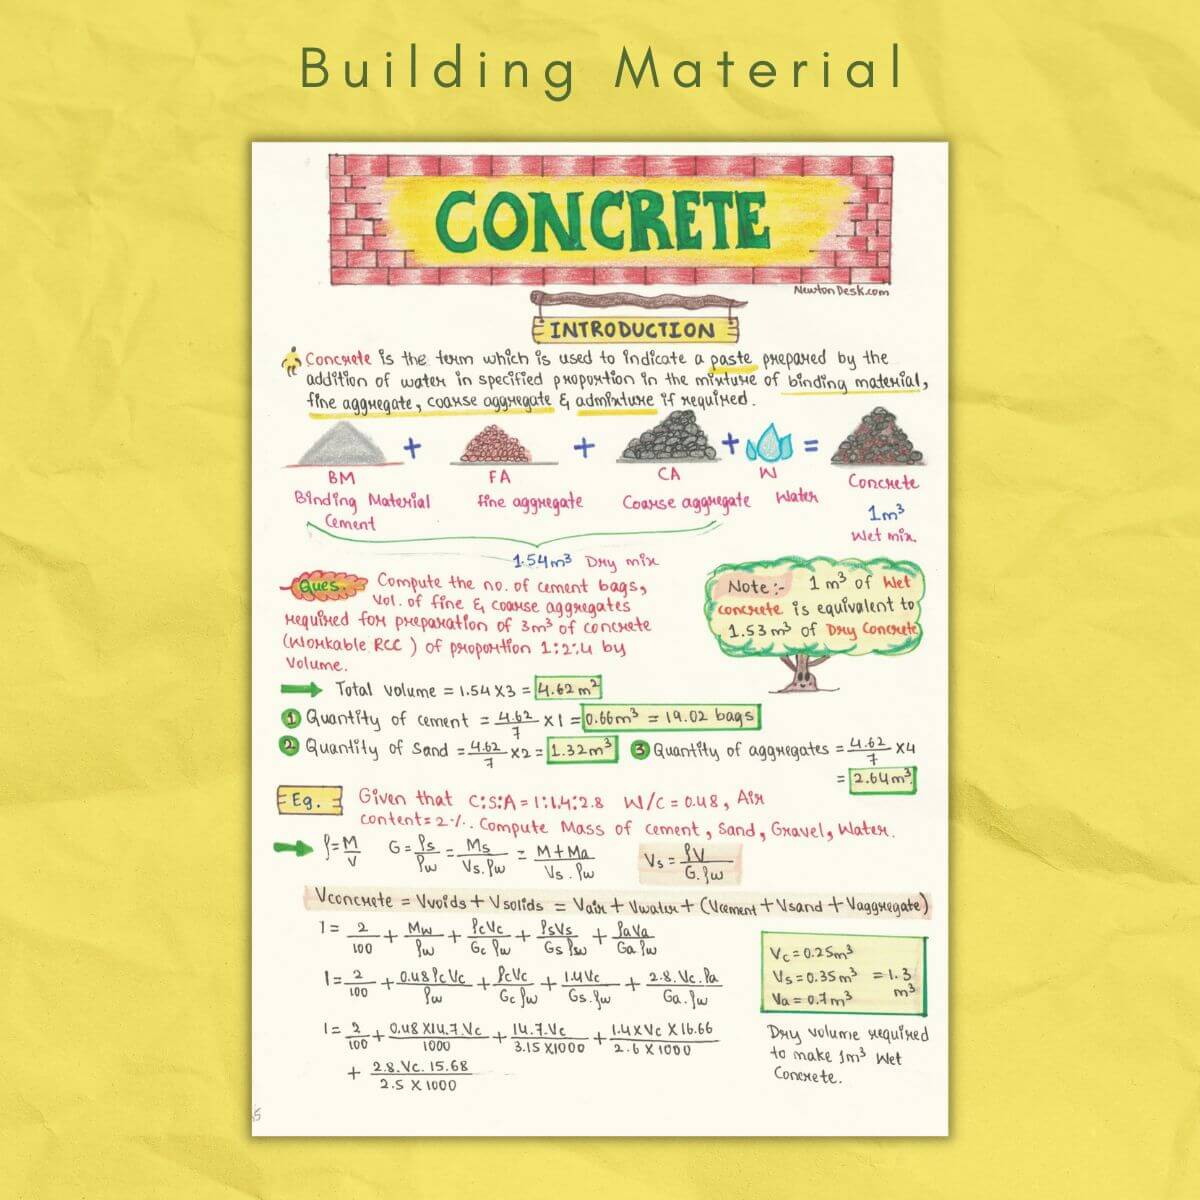 Building Material
CONCRETE
NewtonDesk.com
INTRODUCTION
Concrete is the term which is used to indicate a paste prepared by the
addition of water in specified proportion in the mixture of binding material,
fine aggregate, coarse aggregate & admixture if required.
+ + + =
BM FA CA W Concrete
Binding Material fine aggregate Coarse aggregate Water
Cement
1m³
Wet mix.
1.54m³ Dry mix
Ques. Compute the no. of cement bags,
Vol. of fine & coarse aggregates
required for preparation of 3m³ of concrete
(Workable RCC) of proportion 1:2:4 by
Volume.
Note:- 1 m³ of Wet
concrete is equivalent to
1.53m³ of Dry Concrete
Total volume = 1.54 X3 = 4.62 m²
1 Quantity of cement = 4.62/7 X 1 = 0.66m³ = 19.02 bags
2 Quantity of Sand = 4.62/7 X2 = 1.32m³
3 Quantity of aggregates = 4.62/7 X4
= 2.64m³.
Eg. Given that C:S:A = 1:1.4:2.8 W/C = 0.48, Air
content = 2%. Compute Mass of cement, Sand, Gravel, Water.
ρ = M/V G = ρs/ρw = Ms/Vs.ρw = M+Ma/Vs.ρw Vs = ρV/G.ρw
Vconcrete = Vvoids + Vsolids = Vair + Vwater + (Vcement + Vsand + Vaggregate)
1 = 2/100 + Mw/ρw + ρcVc/Gc ρw + ρsVs/Gs ρw + ρaVa/Ga ρw
1 = 2/100 + 0.48 ρc Vc/ρw + ρcVc/Gc ρw + 1.4Vc/Gs.ρw + 2.8.Vc.ρa/Ga.ρw
1 = 2/100 + 0.48 X14.7 Vc/1000 + 14.7.Vc/3.15 X1000 + 1.4 X Vc X 16.66/2.6 X 1000
+ 2.8.Vc.15.68/2.5 X 1000
Vc = 0.25m³
Vs = 0.35m³ = 1.3
Va = 0.7m³ m³
Dry volume required
to make 1m³ Wet
Concrete.